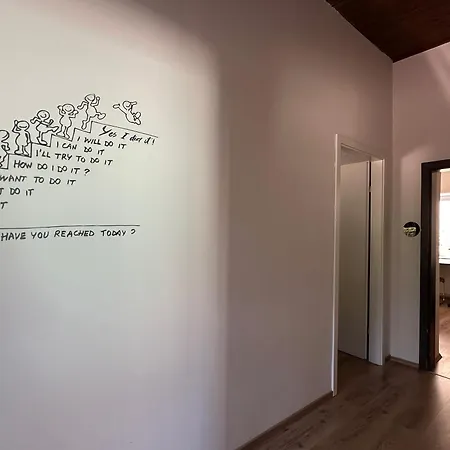 Yes I did it!
I WILL DO IT
I CAN DO IT
I'LL TRY TO DO IT
HOW DO I DO IT?
WANT TO DO IT
DO IT
IT
HAVE YOU REACHED TODAY?